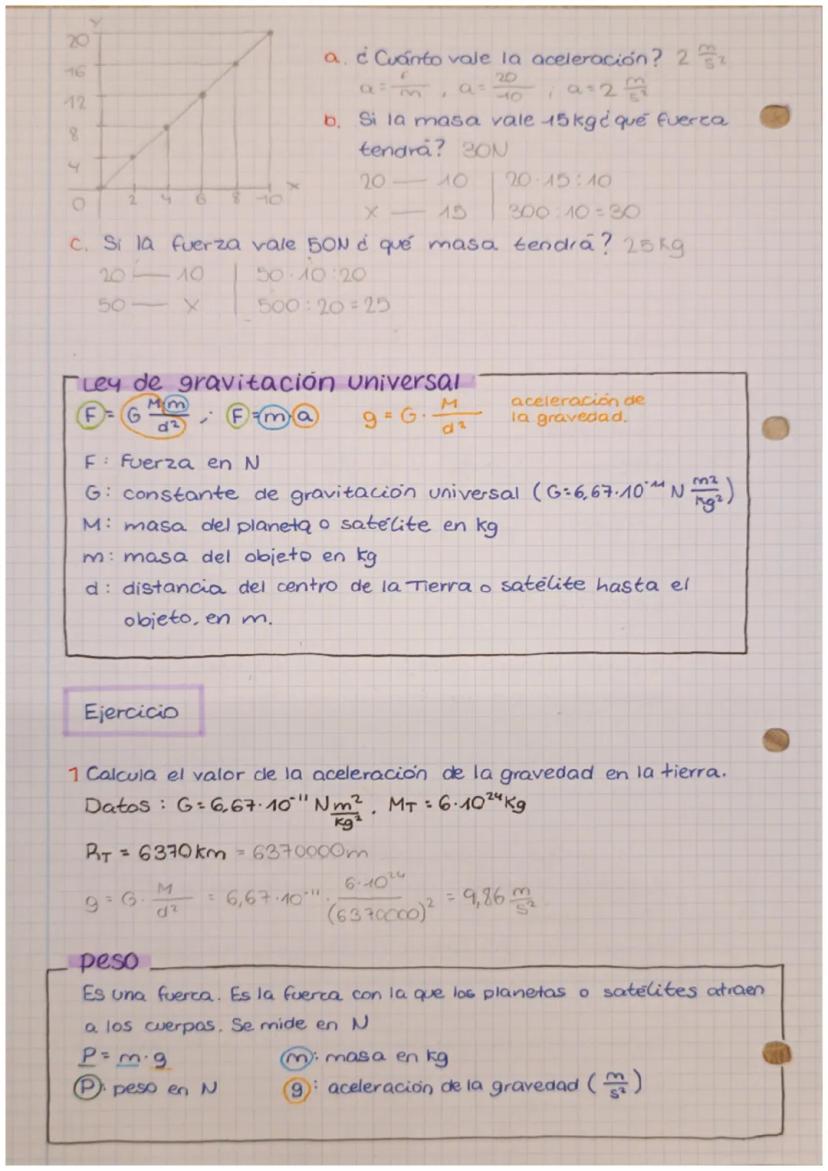 Y
20
16
12
8
4
0 2 4 6 8 10 X
a. ¿Cuánto vale la aceleración? 2 m/s²
a = F/m , a = 20/10 ; a = 2 m/s²
b. Si la masa vale 15kg ¿qué fuerza
tendrá? 30N
20 — 10 | 20·15:10
X — 15 | 300:10=30
c. Si la fuerza vale 50N ¿qué masa tendrá? 25kg
20 — 10 | 50·10:20
50 — X | 500:20=25
Ley de gravitación universal
F = G Mm/d² ; F=m·a g = G· M/d² aceleración de
la gravedad.
F: Fuerza en N
G: constante de gravitación universal (G=6,67·10⁻¹¹ N m²/kg²)
M: masa del planeta o satélite en kg
m: masa del objeto en kg
d: distancia del centro de la Tierra o satélite hasta el
objeto, en m.
Ejercicio
1 Calcula el valor de la aceleración de la gravedad en la tierra.
Datos: G=6,67·10⁻¹¹ N m²/kg². M_T = 6·10²⁴ kg
R_T = 6370km = 6370000m
g = G· M/d² = 6,67·10⁻¹¹· 6·10²⁴/(6370000)² = 9,86 m/s²
peso
Es una fuerza. Es la fuerza con la que los planetas o satélites atraen
a los cuerpos. Se mide en N
P = m·g m: masa en kg
P: peso en N g: aceleración de la gravedad (m/s²)